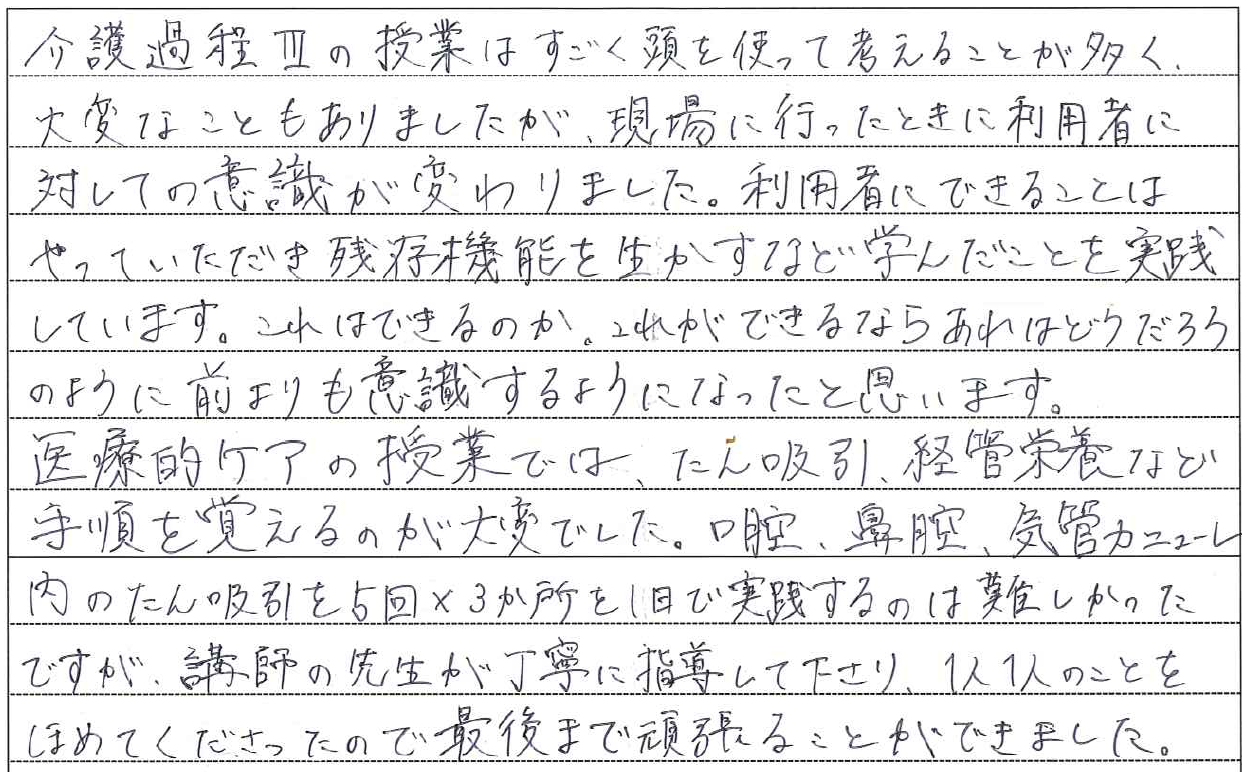 介護過程Ⅲの授業はすごく頭を使って考えることが多く、
大変なこともありましたが、現場に行ったときに利用者に
対しての意識が変わりました。利用者にできることは
やっていただき残存機能を生かすなど学んだことを実践
しています。これはできるのか。これができるならあれはどうだろう
のように前よりも意識するようになったと思います。
医療的ケアの授業では、たん吸引、経管栄養など
手順を覚えるのが大変でした。口腔、鼻腔、気管カニューレ
内のたん吸引を5回×3か所を1日で実践するのは難しかった
ですが、講師の先生が丁寧に指導して下さり、1人1人のことを
ほめてくださったので最後まで頑張ることができました。